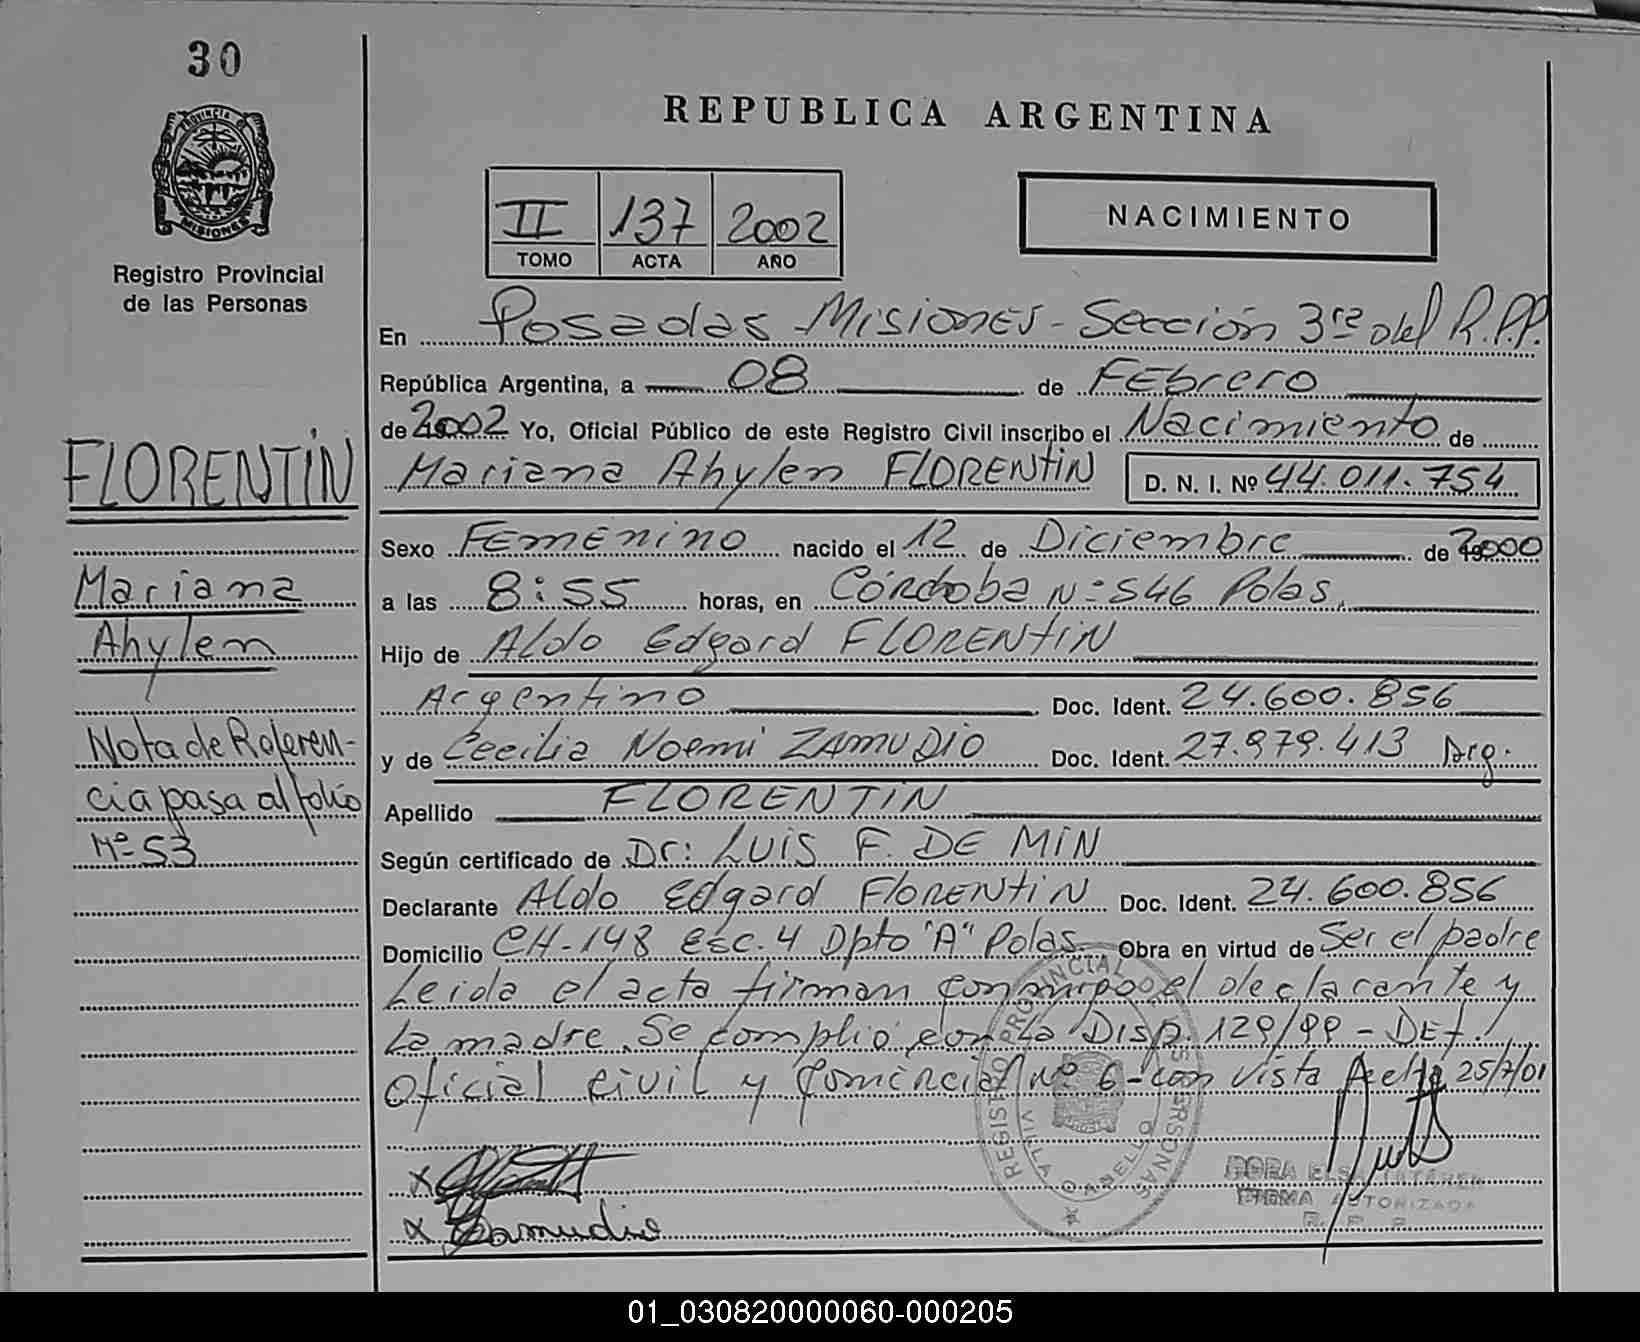 30
PROVINCIA D
MISIONES
Registro Provincial
de las Personas
FLORENTÍN
Mariana
Ahylen
Nota de Referen-
cia pasa al folio
Nº 53
REPUBLICA ARGENTINA
II 137 2002
TOMO ACTA AÑO
NACIMIENTO
En Posadas Misiones - Sección 3ra del R.P.P.
República Argentina, a 08 de Febrero
de 2002 Yo, Oficial Público de este Registro Civil inscribo el Nacimiento de
Mariana Ahylen FLORENTIN D. N. I. Nº 44.011.754
Sexo Femenino nacido el 12 de Diciembre de 2000
a las 8:55 horas, en Córdoba Nº 546 Pdas.
Hijo de Aldo Edgard FLORENTIN
Argentino Doc. Ident. 24.600.856
y de Cecilia Noemi ZAMUDIO Doc. Ident. 27.979.413 Arg.
Apellido FLORENTIN
Según certificado de Dr: LUIS F. DE MIN
Declarante Aldo Edgard FLORENTIN Doc. Ident. 24.600.856
Domicilio CH-148 esc. 4 Dpto "A" Pdas. Obra en virtud de Ser el padre
Leida el acta firman conmigo el declarante y
la madre. Se complió con la Disp. 129/99 - DEf.
Oficial Civil y Comercial nº 6 - con vista fecha 25/7/01
REGISTRO PROVINCIAL PERSONAS
VILLA CABELLO
x
x Zamudio
DORA ELSA
FIRMA AUTORIZADA
R. P. P.
01_030820000060-000205